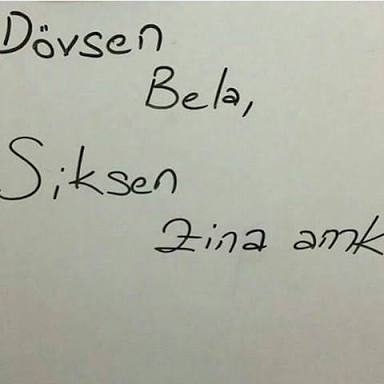 Dövsen
Bela,
Siksen
Zina amk